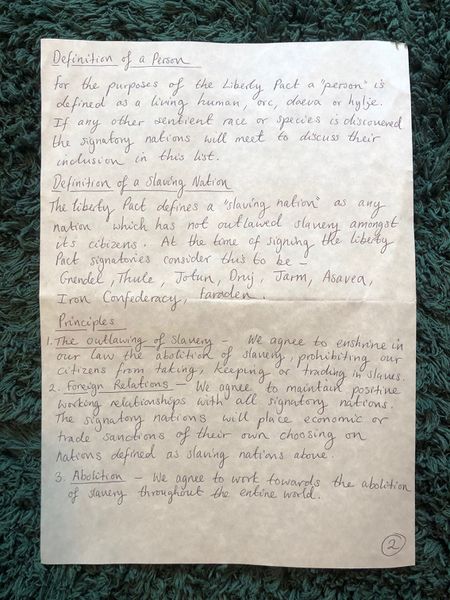 Definition of a Person
For the purposes of the Liberty Pact a "person" is
defined as a living human, orc, daeva or hylje.
If any other sentient race or species is discovered
the signatory nations will meet to discuss their
inclusion in this list.
Definition of a Slaving Nation
The Liberty Pact defines a "slaving nation" as any
nation which has not outlawed slavery amongst
its citizens. At the time of signing the Liberty
Pact signatories consider this to be -
Grendel, Thule, Jotun, Druj, Jarm, Asavea,
Iron Confederacy, Faraden.
Principles
1. The outlawing of slavery - We agree to enshrine in
our law the abolition of slavery, prohibiting our
citizens from taking, keeping or trading in slaves.
2. Foreign Relations - We agree to maintain positive
working relationships with all signatory nations.
The signatory nations will place economic or
trade sanctions of their own choosing on
nations defined as slaving nations above.
3. Abolition - We agree to work towards the abolition
of slavery throughout the entire world.
2